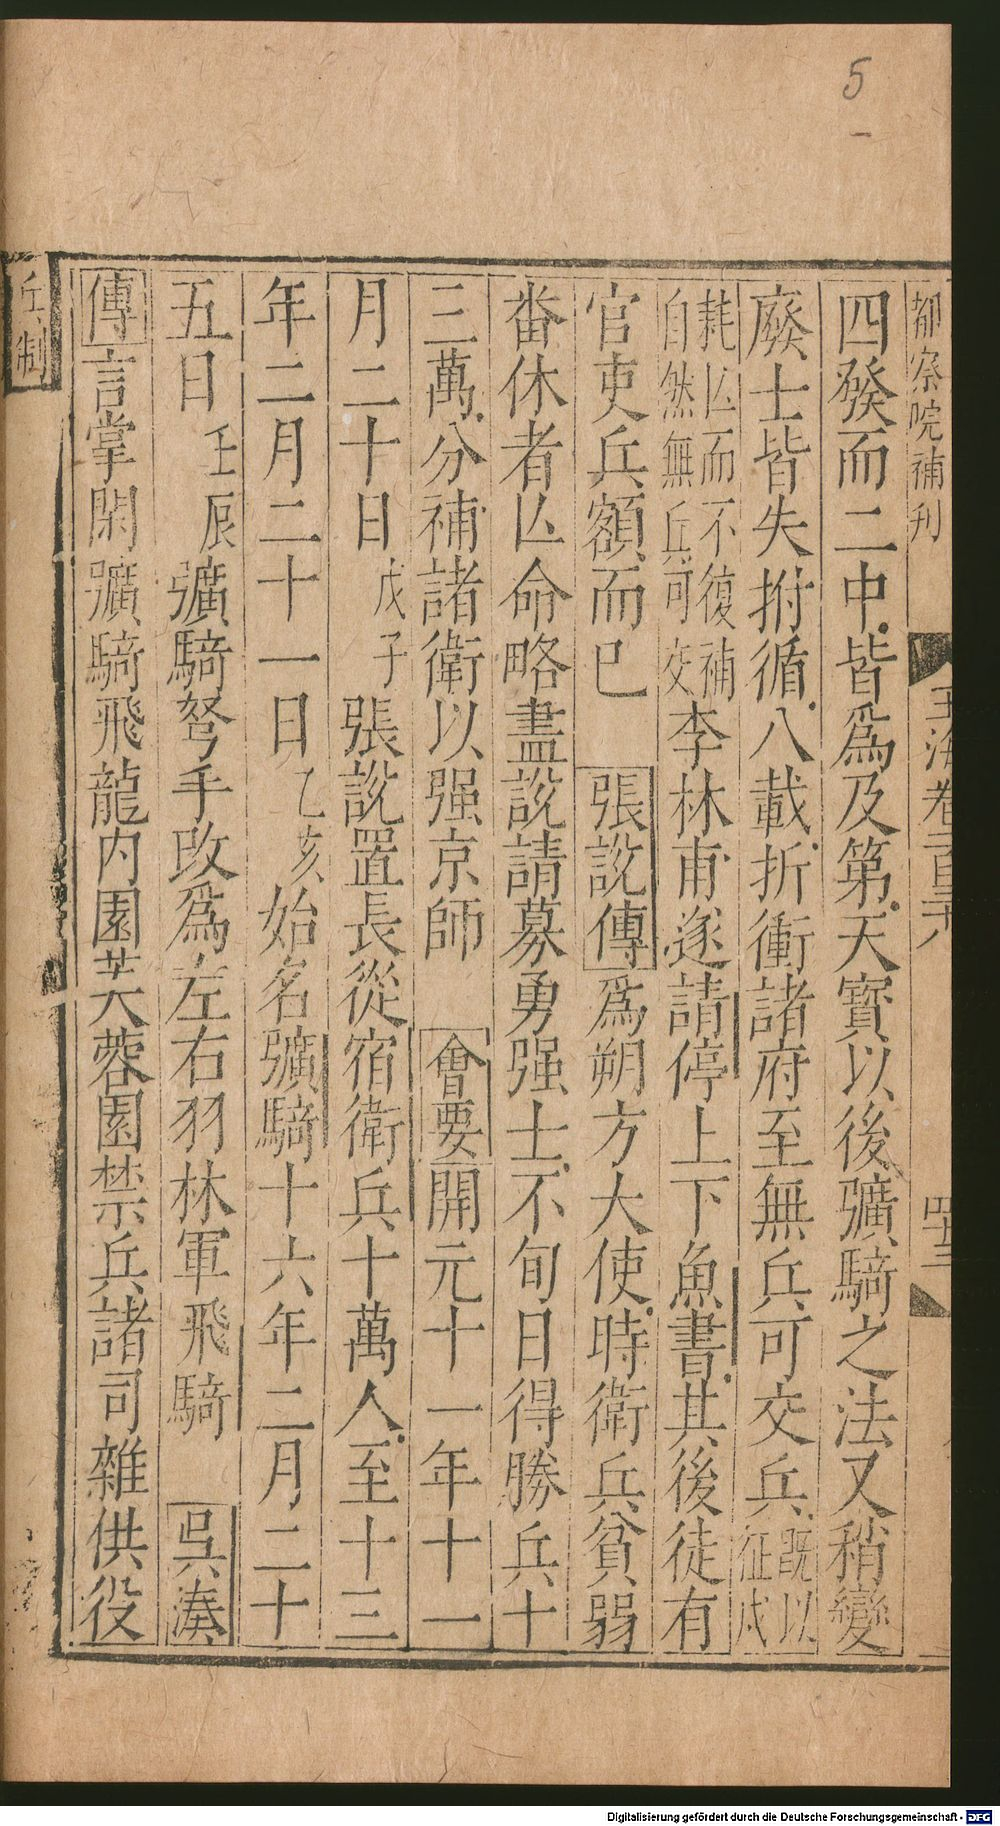 5
都察院補刊
玉海卷一百三十八
四發而二中皆爲及第天寶以後彍騎之法又稍變
廢士皆失拊循八載折衝諸府至無兵可交兵既以征戍
耗亾而不復補自然無兵可交李林甫遂請停上下魚書其後徒有
官吏兵額而已 張說傳爲朔方大使時衛兵貧弱
畨休者亾命略盡說請募勇强士不旬日得勝兵十
三萬分補諸衛以强京師 會要開元十一年十一
月二十日戊子張說置長從宿衛兵十萬人至十三
年二月二十一日乙亥始名彍騎十六年二月二十
五日壬辰彍騎弩手改爲左右羽林軍飛騎 吳湊
傳言掌閑彍騎飛龍内園芙蓉園禁兵諸司雜供役
兵制
Digitalisierung gefördert durch die Deutsche Forschungsgemeinschaft - DFG